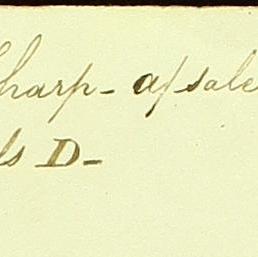 Sharp - a/ sale
ls D -